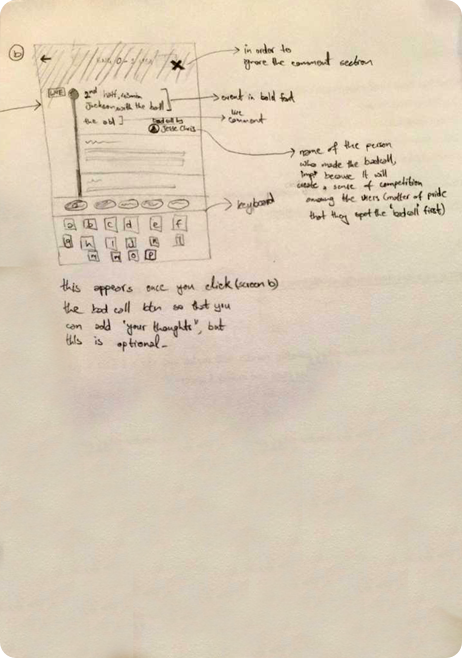 b
in order to
ignore the comment section
LIVE
2nd half,
Jackson with the ball
event in bold font
the obl
live
comment
bad call by
Jesse Chris
name of the person
who made the badcall,
imp* because it will
create a sense of competition
among the users (matter of pride
that they spot the 'badcall' first)
keyboard
a b c d e f
g h i J k l
m n o p
this appears once you click (screen b)
the bad call btn so that you
can add "your thoughts", but
this is optional_